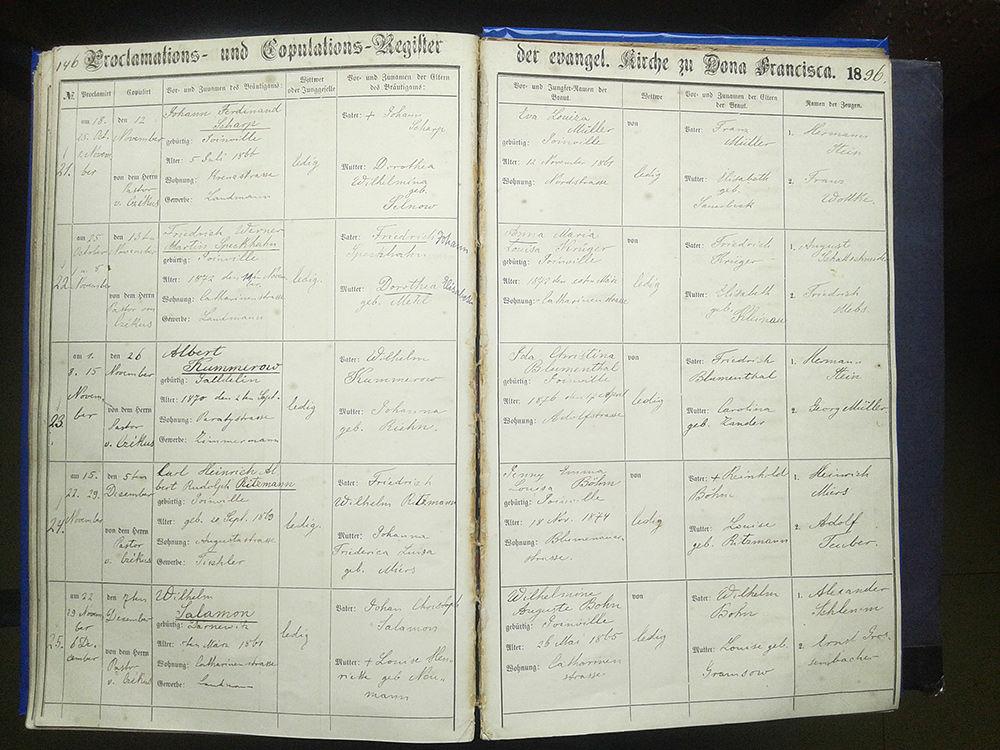 146 Proclamations- und Copulations-Register
der evangel. Kirche zu Dona Francisca. 1896.
№ Proclamirt Copulirt Vor- und Zunamen des Bräutigams: Wittwer oder Junggeselle Vor- und Zunamen der Eltern des Bräutigams:
Vor- und Jungfer-Namen der Braut. Wittwe Vor- und Zunamen der Eltern der Braut. Namen der Zeugen.
21.
am 18.
25. Oct.
1. Novem
ber
den 12
November
von dem Herrn
Pastor
v. Czékus
Johann Ferdinand
Scharp
gebürtig: Joinville
Alter: 5 Juli 1866
Wohnung:
Gewerbe: Landmann
ledig
Vater: + Johann
Scharp
Mutter: Dorothea
Wilhelmina
geb.
Selnow
Eva Louiza
Müller
gebürtig: Joinville
Alter: 12 November 1861
Wohnung: Nordstrasse
von
ledig
Vater: Franz
Müller
Mutter: Elisabeth
geb.
Sauerbeck
1. Hermann
Stein
2. Franz
Wottke.
22.
am 25
October
1 u. 8
November
den 13ten
November
von dem Herrn
Pastor von
Czékus
Friedrich Werner
Martin Speckhahn
gebürtig: Joinville
Alter: 1872 den Novem
ber
Wohnung: Catharinenstrasse
Gewerbe: Landmann
ledig.
Vater: Friedrich Johann
Speckhahn
Mutter: Dorothea Elisabeth
geb. Mehl
Anna Maria
Louisa Krüger
gebürtig: Joinville
Alter:
Wohnung: Catharinenstrasse
von
ledig
Vater: Friedrich
Krüger
Mutter: Elisabeth
geb.
1. August
2. Friedrich
Mebs.
23.
am 1.
8. 15
Novem
ber
den 26
November
von dem Herrn
Pastor
v. Czékus
Albert
Kummerow
gebürtig:
Alter: 1870 den 2ten Sept.
Wohnung: Paratystrasse
Gewerbe: Zimmermann
ledig
Vater: Wilhelm
Kummerow
Mutter: Johanna
geb. Riehn.
Ida Christina
Blumenthal
gebürtig: Joinville
Alter: 1876 den April
Wohnung: Adolfstrasse
von
ledig
Vater: Friedrich
Blumenthal
Mutter: Carolina
geb. Zander
1. Hermann
Stein
2. Georg Müller.
24.
am 15.
22. 29.
November
den 5ten
Dezember
von dem Herrn
Pastor
v. Czékus
Carl Heinrich Al
bert Rudolph Ritzmann
gebürtig: Joinville
Alter: geb. 20 Sept. 1869
Wohnung: Augustastrasse
Gewerbe: Tischler
ledig.
Vater: Friedrich
Wilhelm Ritzmann
Mutter: Johanna
Friederica Luisa
geb. Miers
Jenny Emma
Louisa Böhn
gebürtig: Joinville
Alter: 18 Nov. 1874
Wohnung: Blumenauer
strasse.
von
ledig
Vater: + Reinhold
Böhn
Mutter: Louise
geb. Ritzmann
1. Heinrich
Miers
2. Adolf
Teuber.
25.
am 22
29. Novem
ber
6 De.
cember
den 7ten
Dezember
von dem Herrn
Pastor
v. Czékus
Wilhelm
Salamon
gebürtig:
Alter: März 1861
Wohnung: Catharinenstrasse
Gewerbe: Landmann
ledig
Vater: Johan Christoph
Salamon
Mutter: + Louise Hen
riette geb Neu-
mann
Wilhelmine
Auguste Bohn
gebürtig: Joinville
Alter: 26 Mai 1865
Wohnung: Catharinen
strasse.
von
ledig
Vater: Wilhelm
Bohn
Mutter: Louise geb.
Gramsow
1. Alexander
Schlemm
2. Ernst Gros
senbacher